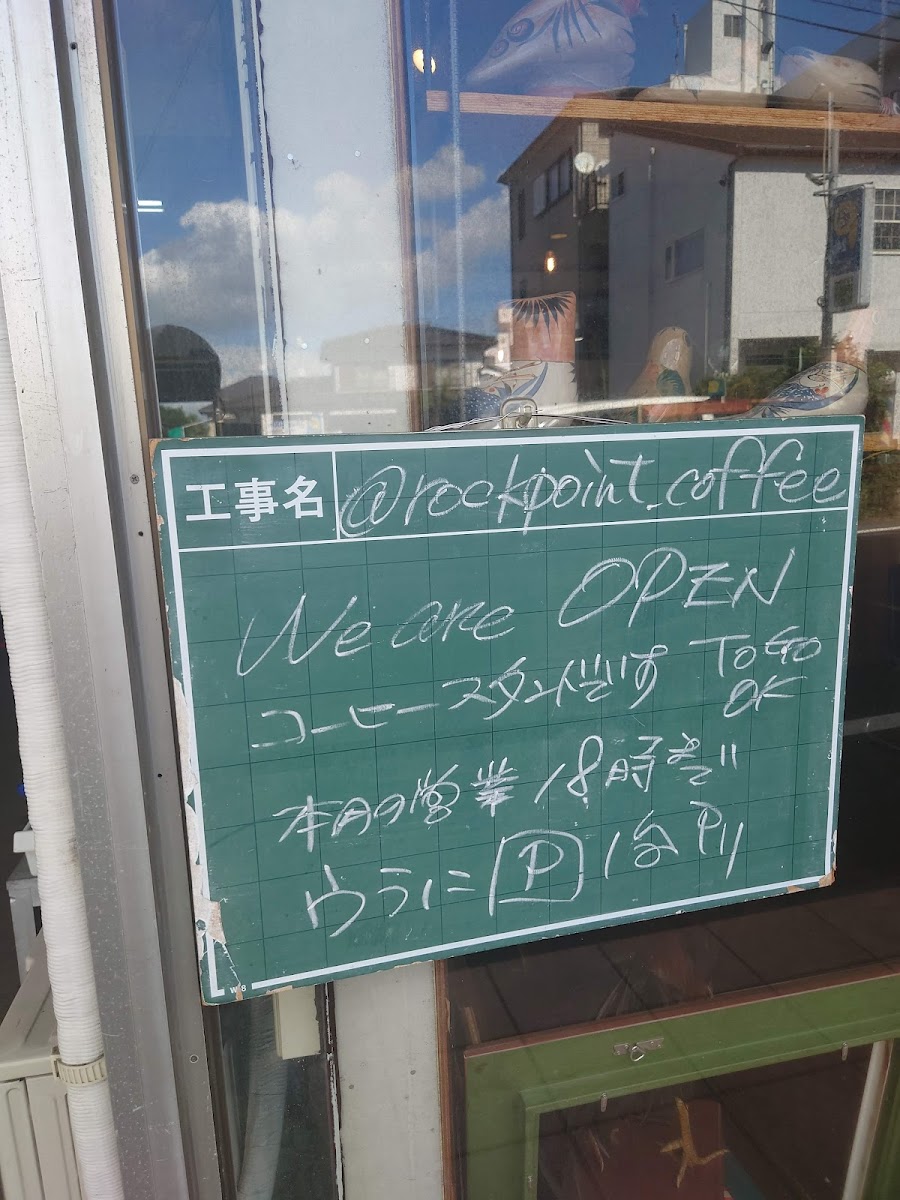 工事名 @rockpoint.coffee
We are OPEN
コーヒースタンドです To Go OK
本日の営業 18時まで!!
ウラに P 1台 アリ
W8